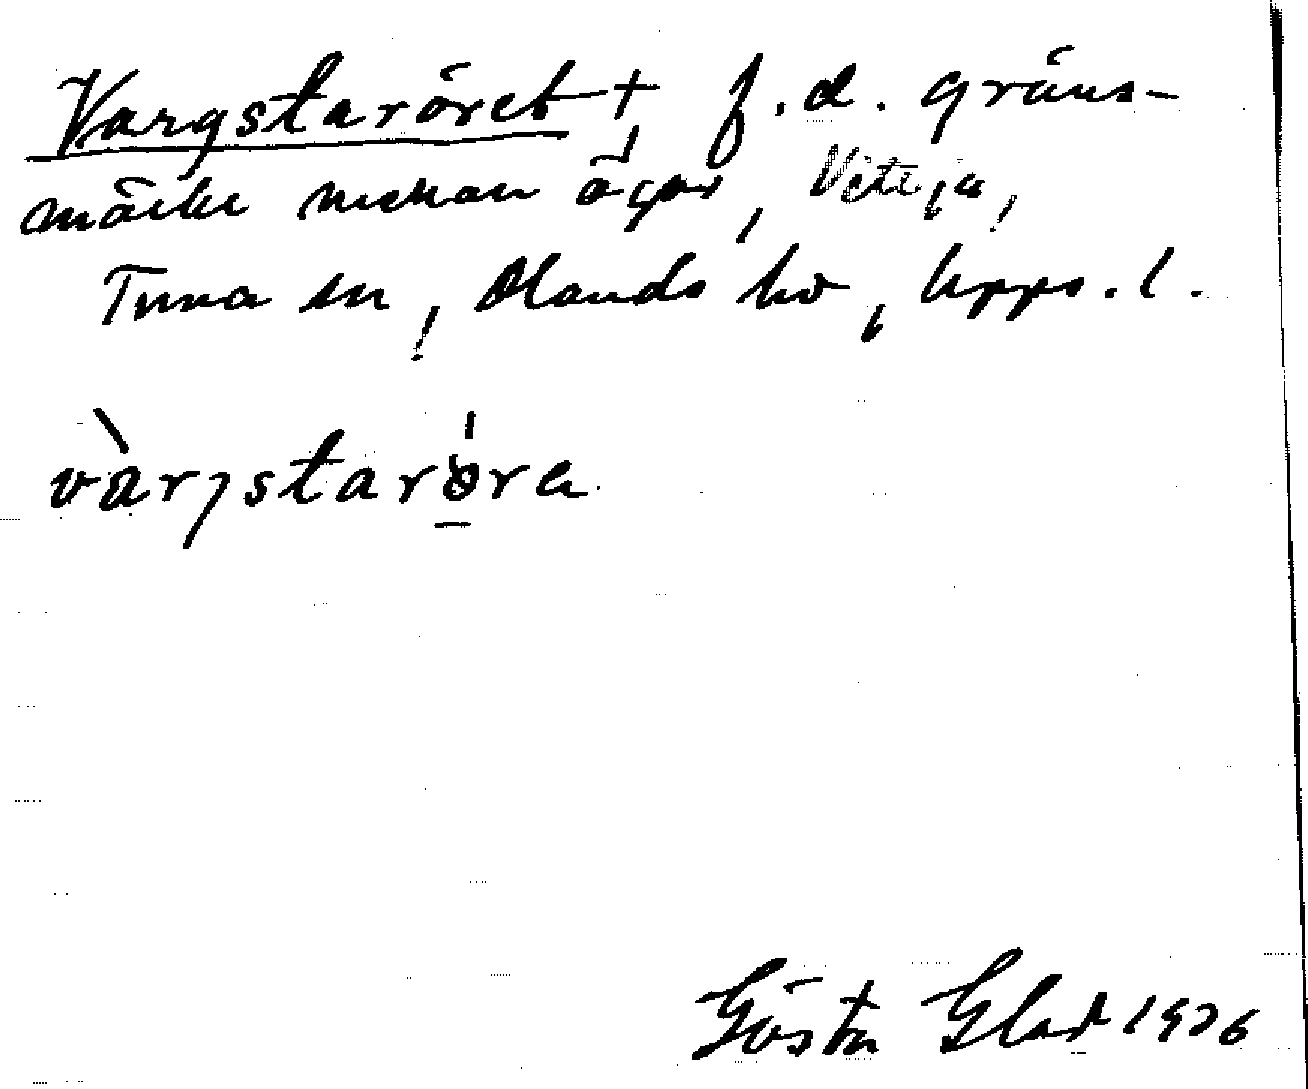 Vargstaröret †, f.d. gräns-
märke mellan ägor, Vettja,
Tuna sn, Olands hd, Upps. l.
vàrgstarö́ra
Gösta Glad 1926